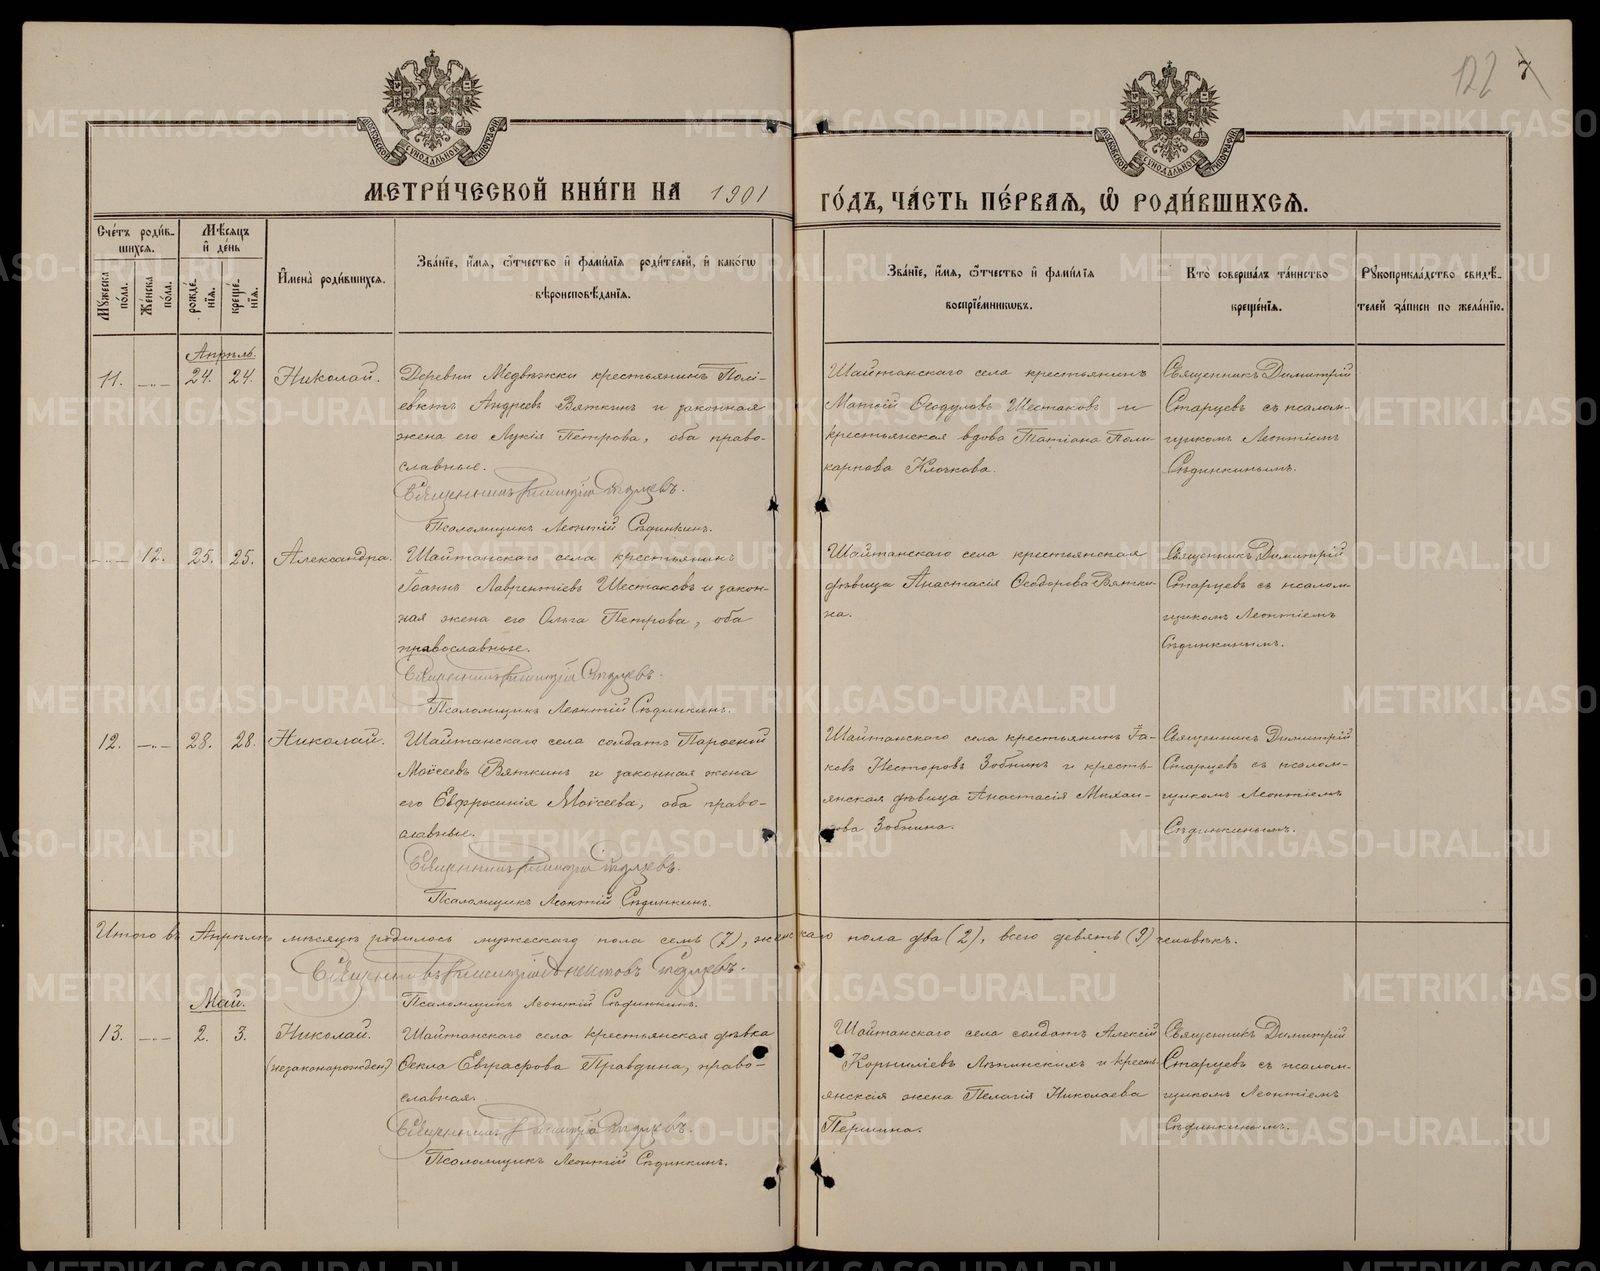 122 7
МОСКОВСКОЙ СУНОДАЛЬНОЙ ТИПОГРАФІИ
МОСКОВСКОЙ СУНОДАЛЬНОЙ ТИПОГРАФІИ
МЕТРИ́ЧЕСКОЙ КНИ́ГИ НА 1901 ГО́ДЪ, ЧА́СТЬ ПЕ́РВАѦ, Ѡ҆ РОДИ́ВШИХСѦ.
Сче́тъ роди́в-
шихсѧ.
Мѣ́сѧцъ
и҆ де́нь
Мꙋ́жеска по́ла.
Же́нска по́ла.
рожде́-нїѧ.
креще́-нїѧ.
И҆мена̀ роди́вшихсѧ.
Зва́нїе, и҆́мѧ, ѻ҆́тчество и҆ фами́лїѧ роди́телей, и҆ како́гѡ
вѣроисповѣ́данїѧ.
Зва́нїе, и҆́мѧ, ѻ҆́тчество и҆ фами́лїѧ
воспрїе́мникѡвъ.
Кто̀ соверша́лъ та́инство
креще́нїѧ.
Рꙋкоприкла́дство свидѣ́-
телей за́писи по жела́нїю.
Апрѣль.
11. —„— 24. 24. Николай.
Деревни Медвѣжки крестьянинъ Полі-
евктъ Андреевъ Вяткинъ и законная
жена его Лукія Петрова, оба право-
славные.
Священникъ Димитрій Старцевъ.
Псаломщикъ Леонтій Сѣдинкинъ.
Шайтанскаго села крестьянинъ
Матѳій Ѳеодуловъ Шестаковъ и
крестьянская вдова Татіана Поли-
карпова Клочкова.
Священникъ Димитрій
Старцевъ съ псалом-
щикомъ Леонтіемъ
Сѣдинкинымъ.
—„— 12. 25. 25. Александра.
Шайтанскаго села крестьянинъ
Іоаннъ Лаврентіевъ Шестаковъ и закон-
ная жена его Ольга Петрова, оба
православные.
Священникъ Димитрій Старцевъ.
Псаломщикъ Леонтій Сѣдинкинъ.
Шайтанскаго села крестьянская
дѣвица Анастасія Ѳеодорова Вятки-
на.
Священникъ Димитрій
Старцевъ съ псалом-
щикомъ Леонтіемъ
Сѣдинкинымъ.
12. —„— 28. 28. Николай.
Шайтанскаго села солдатъ Парѳеній
Моѵсеевъ Вяткинъ и законная жена
его Евфросинія Моѵсеева, оба право-
славные.
Священникъ Димитрій Старцевъ.
Псаломщикъ Леонтій Сѣдинкинъ.
Шайтанскаго села крестьянинъ Іа-
ковъ Несторовъ Зобнинъ и кресть-
янская дѣвица Анастасія Михаи-
лова Зобнина.
Священникъ Димитрій
Старцевъ съ псалом-
щикомъ Леонтіемъ
Сѣдинкинымъ.
Итого въ Апрѣлѣ мѣсяцѣ родилось мужескаго пола семь (7), женскаго пола два (2), всего девять (9) человѣкъ.
Псаломщикъ Леонтій Сѣдинкинъ.
Май.
13. —„— 2. 3. Николай.
(незаконорожден)
Шайтанскаго села крестьянская дѣвка
Ѳекла Евграфова Правдина, право-
славная.
Священникъ Димитрій Старцевъ.
Псаломщикъ Леонтій Сѣдинкинъ.
Шайтанскаго села солдатъ Алексій
Корниліевъ Ляпинскихъ и кресть-
янская жена Пелагія Николаева
Першина.
Священникъ Димитрій
Старцевъ съ псалом-
щикомъ Леонтіемъ
Сѣдинкинымъ.
METRIKI.GASO-URAL.RU